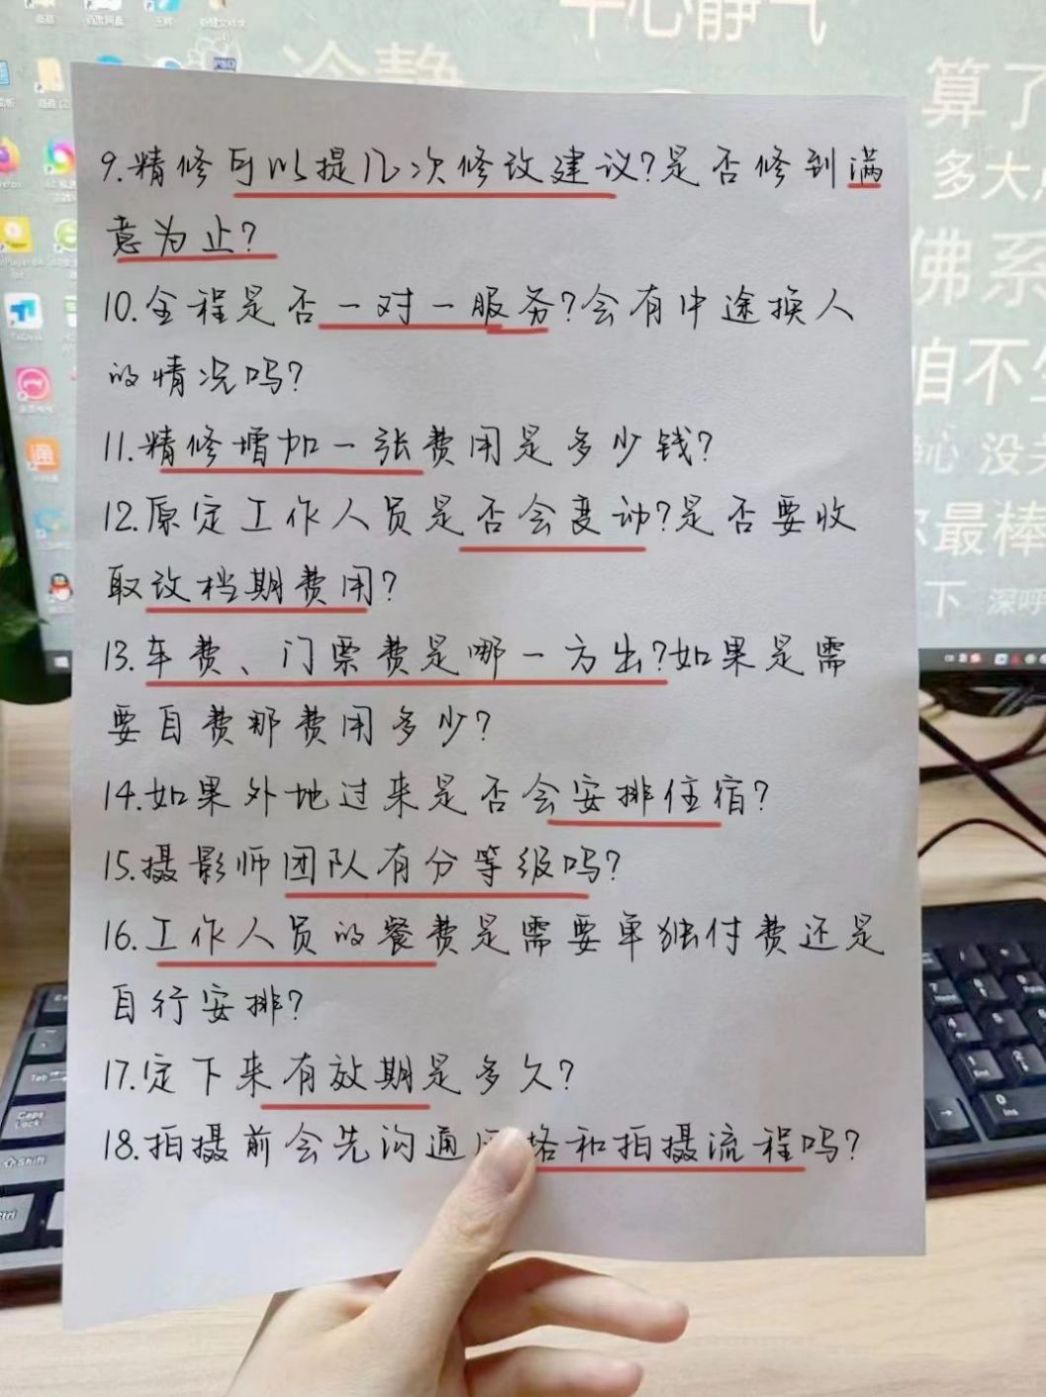 平心静气
冷静
算了
多大点
佛系
咱不生
静心 没关
你最棒
下 深呼
9.精修可以提几次修改建议?是否修到满
意为止?
10.全程是否一对一服务?会有中途换人
的情况吗?
11.精修增加一张费用是多少钱?
12.原定工作人员是否会变动?是否要收
取改档期费用?
13.车费、门票费是哪一方出?如果是需
要自费那费用多少?
14.如果外地过来是否会安排住宿?
15.摄影师团队有分等级吗?
16.工作人员的餐费是需要单独付费还是
自行安排?
17.定下来有效期是多久?
18.拍摄前会先沟通风格和拍摄流程吗?